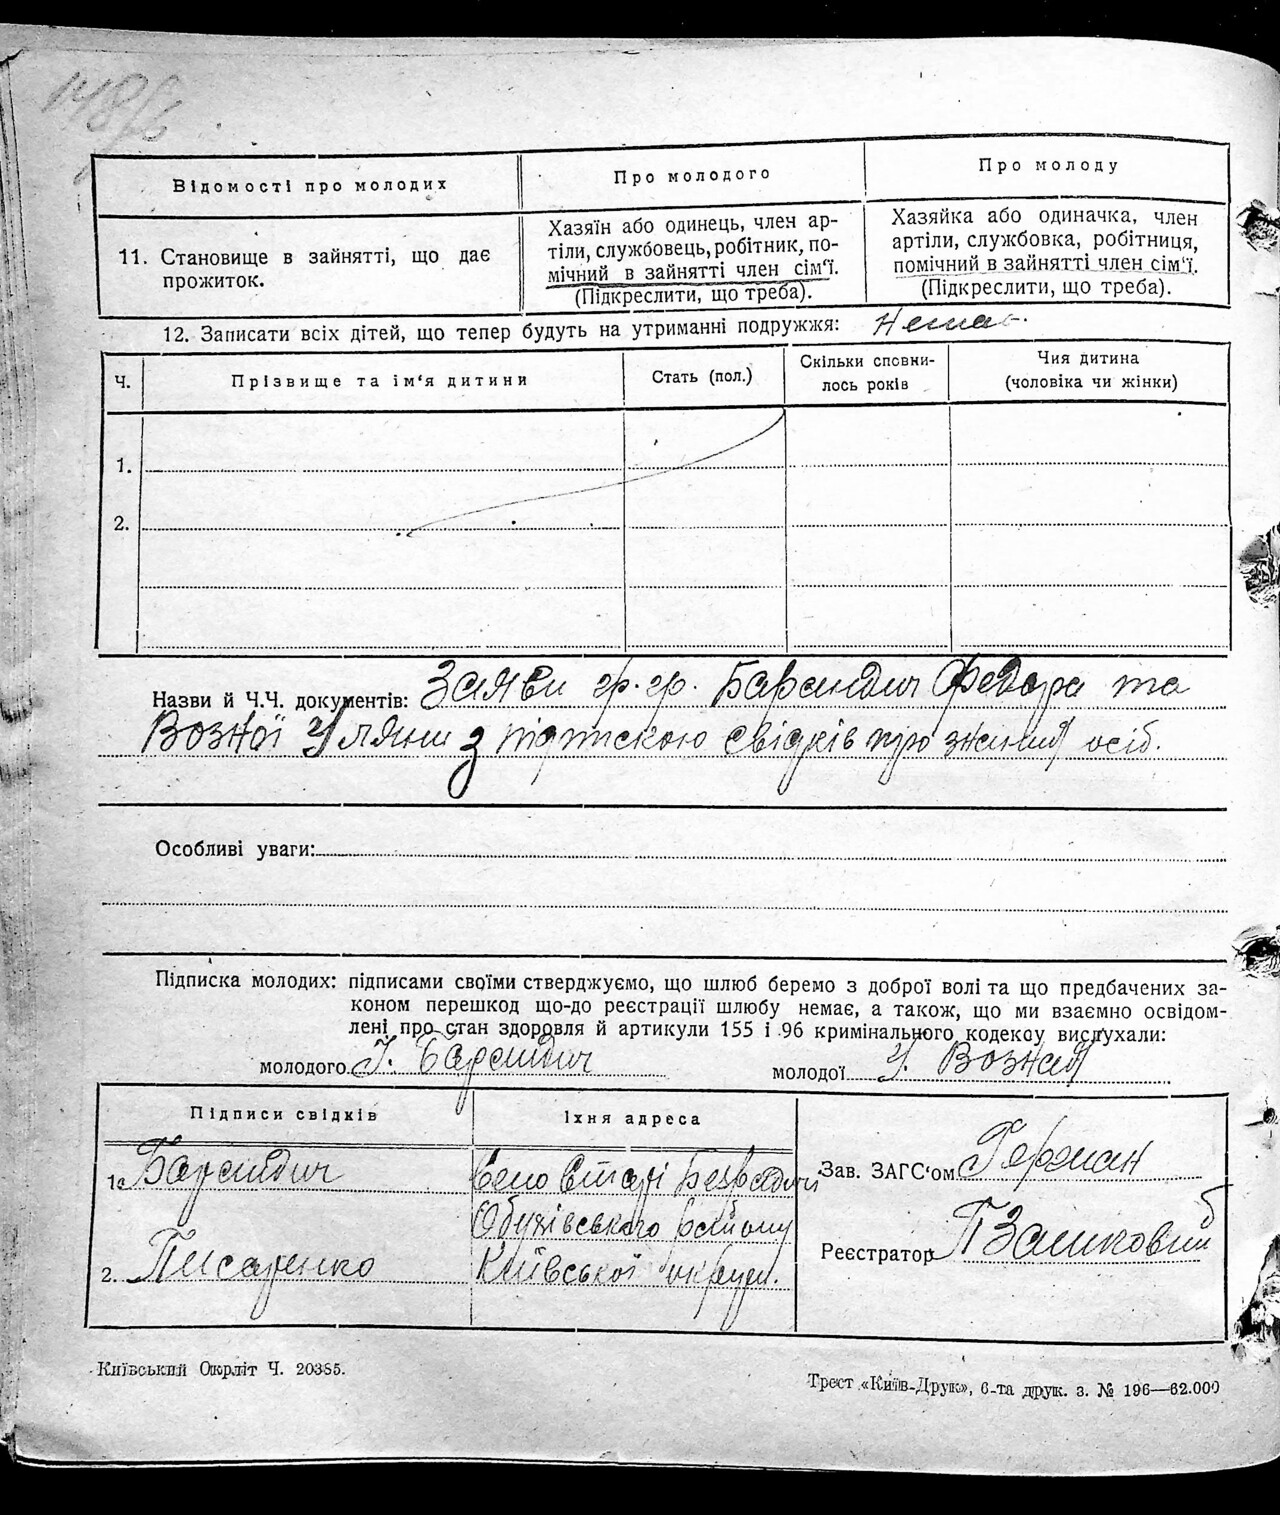 148
Відомості про молодих
Про молодого
Про молоду
11. Становище в зайнятті, що дає
прожиток.
Хазяїн або одинець, член ар-
тіли, службовець, робітник, по-
мічний в зайнятті член сім'ї.
(Підкреслити, що треба).
Хазяйка або одиначка, член
артіли, службовка, робітниця,
помічний в зайнятті член сім'ї.
(Підкреслити, що треба).
12. Записати всіх дітей, що тепер будуть на утриманні подружжя: Немає
Ч.
Прізвище та ім'я дитини
Стать (пол.)
Скільки сповни-
лось років
Чия дитина
(чоловіка чи жінки)
1.
2.
Назви й Ч.Ч. документів: Заяви гр. гр. Барандич Федора та
Возної Уляни з підпискою свідків про знання осіб.
Особливі уваги:
Підписка молодих: підписами своїми стверджуємо, що шлюб беремо з доброї волі та що предбачених за-
коном перешкод що-до реєстрації шлюбу немає, а також, що ми взаємно освідом-
лені про стан здоровля й артикули 155 і 96 кримінального кодексу вислухали:
молодого Барандич
молодої У. Возная
Підписи свідків
Їхня адреса
1. Барандич
2. Писаренко
Село Старі Безрадичі
Обухівського району
Київської округи.
Зав. ЗАГС'ом Герман
Реєстратор
Київський Окрліт Ч. 20385.
Трест «Київ-Друк», 6-та друк. з. № 196—62.000